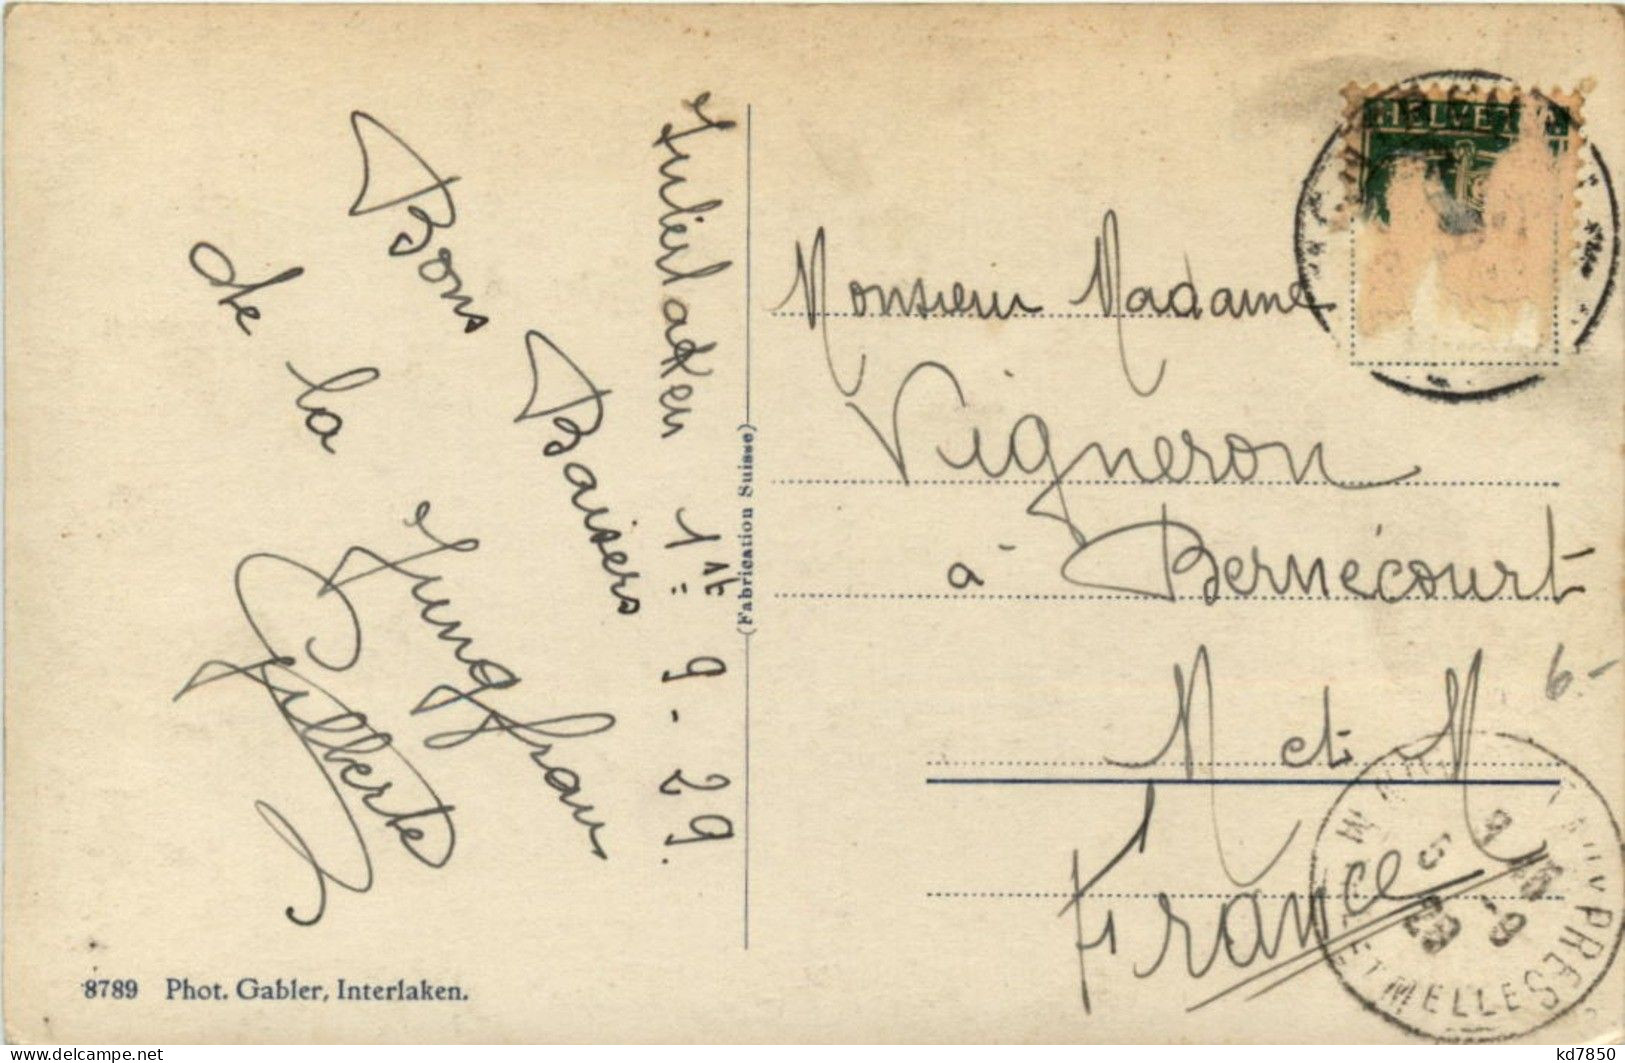 Julierlaken 1er 9-29.
Bons Baisers
de la Jungfrau
Gilberte
(Fabrication Suisse)
8789 Phot. Gabler, Interlaken.
HELVETIA
Monsieur Madame
Vigneron
à Bernécourt
6.-
M et M
France
PRÈS
ET MELLE
kd7850